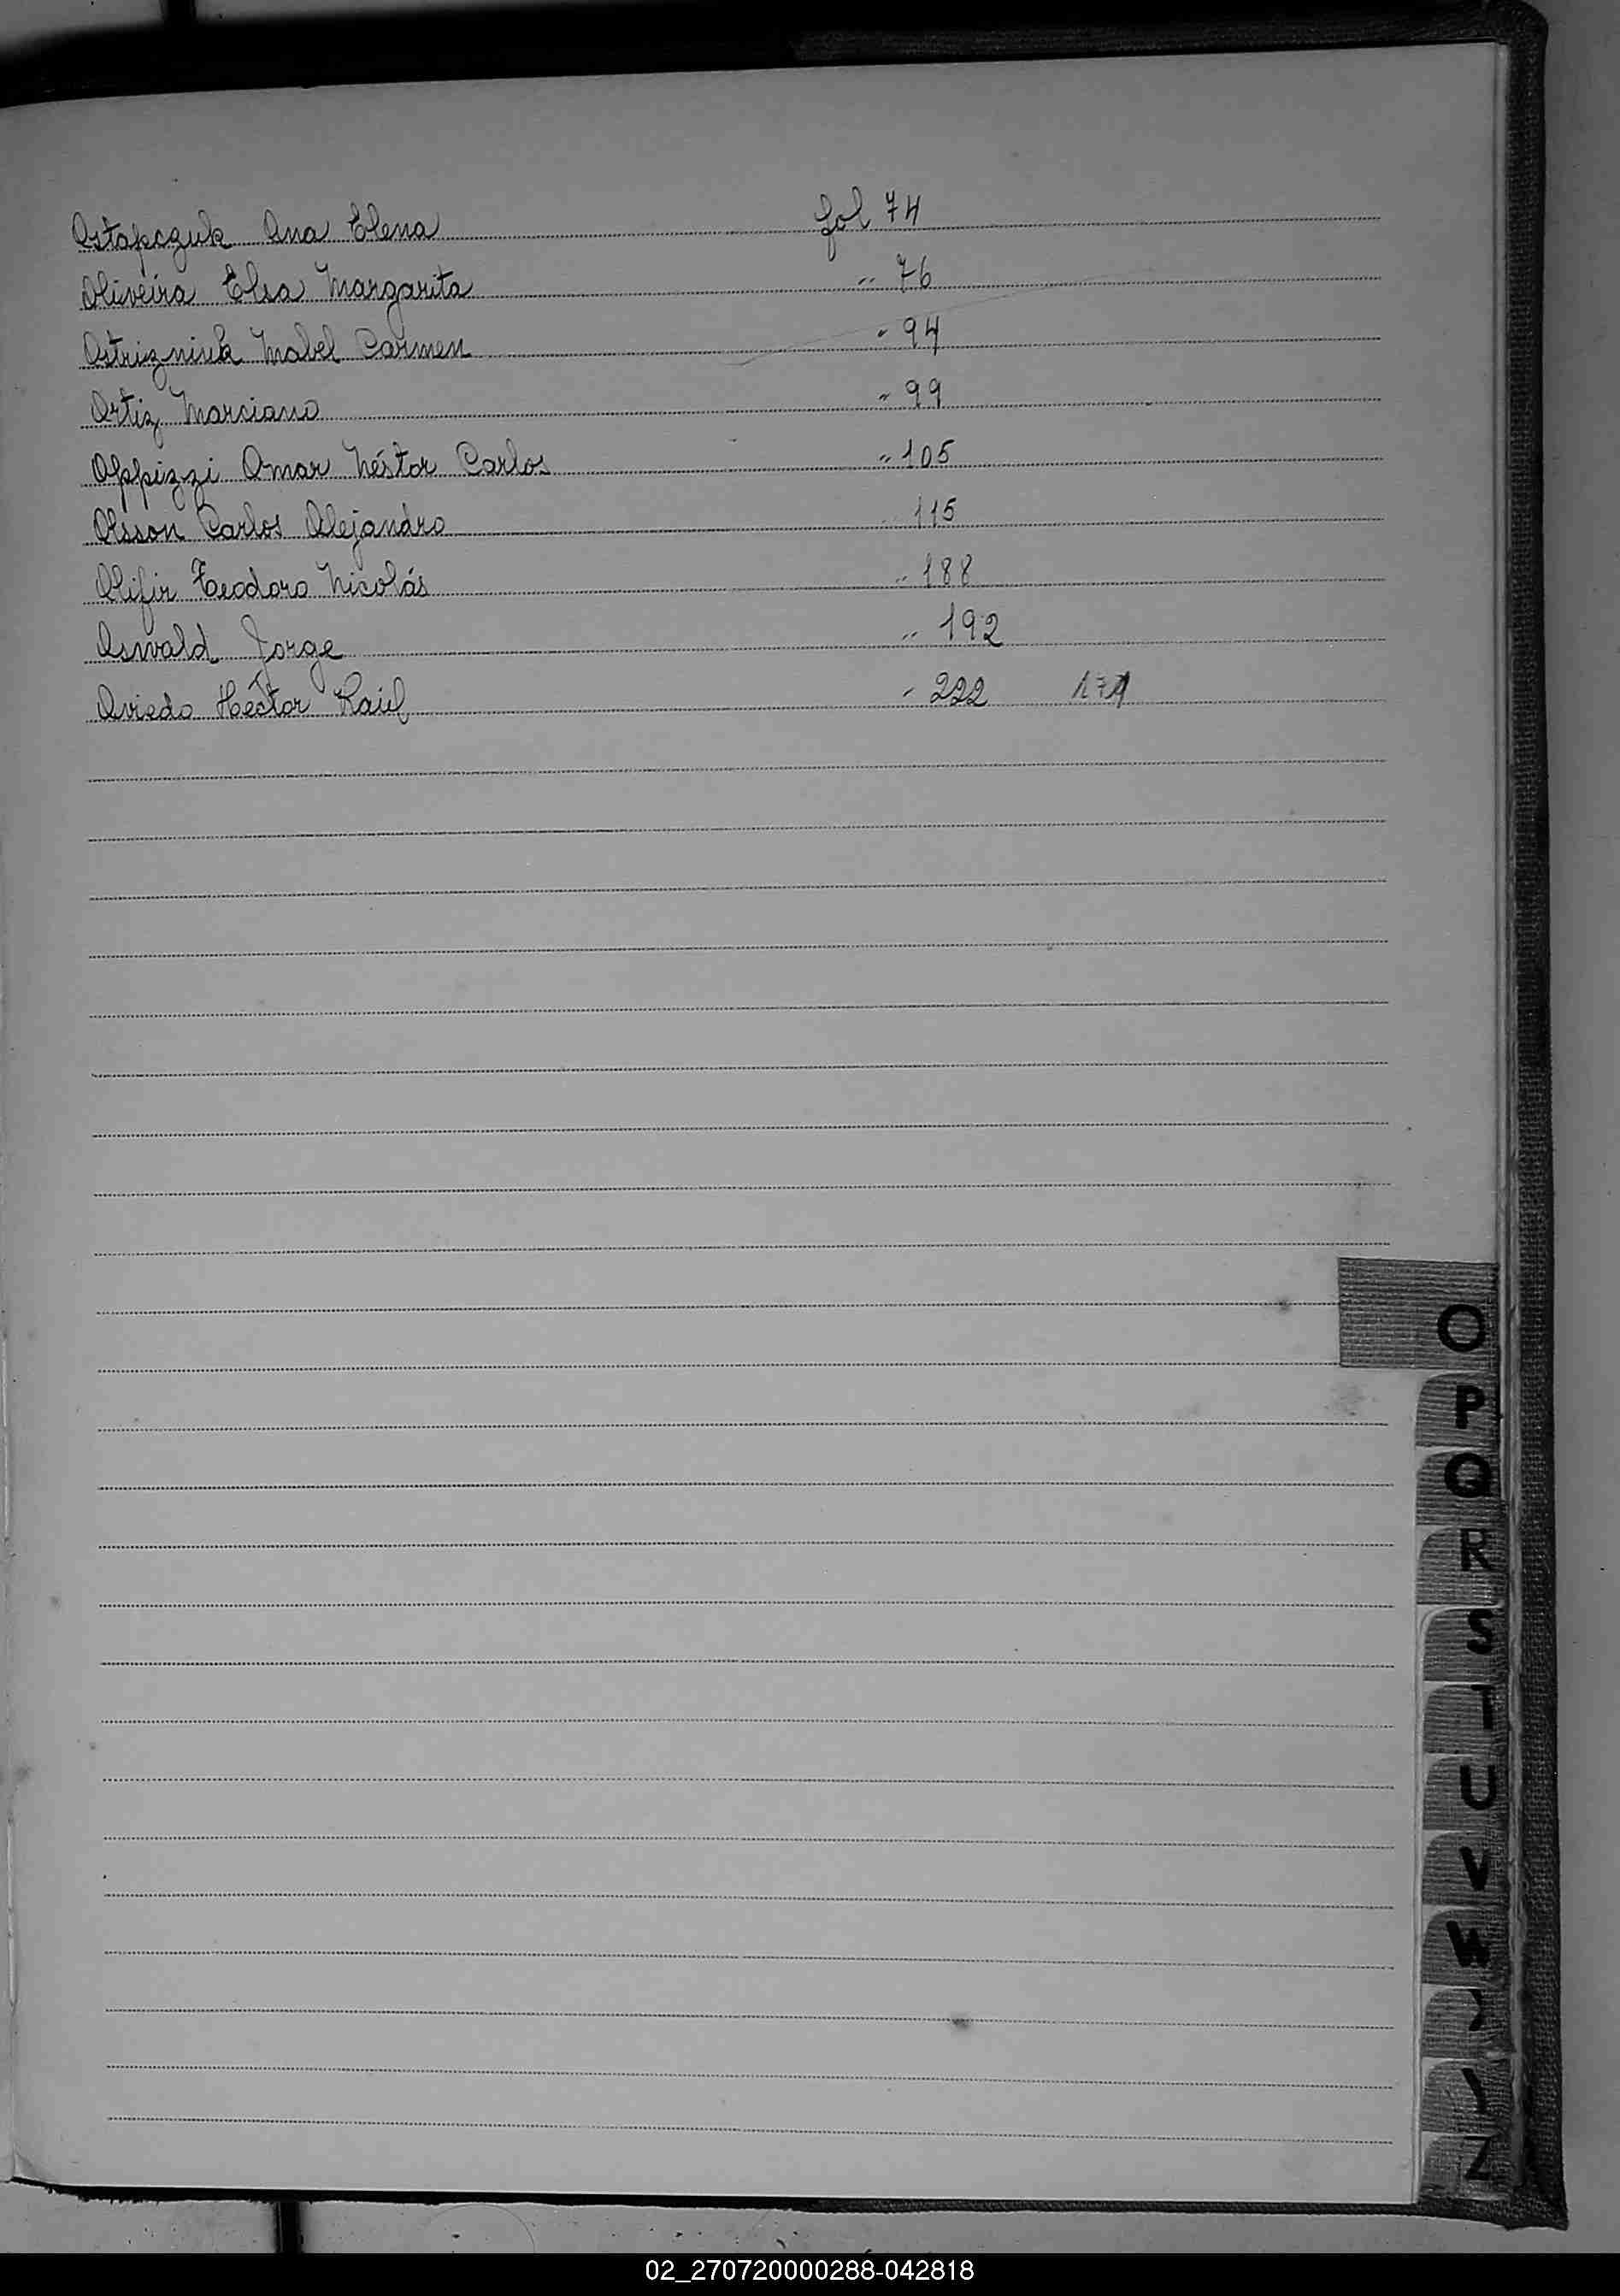 Ostapczuk Ana Elena fol 74
Oliveira Elsa Margarita " 76
Ostrizniuk Mabel Carmen " 94
Ortiz Marciano " 99
Oppizzi Omar Néstor Carlos " 105
Olsson Carlos Alejandro 115
Olifir Teodoro Nicolás " 188
Oswald Jorge " 192
Oviedo Héctor Raúl " 222
O
P
Q
R
S
T
U
V
W
Z
02_270720000288-042818